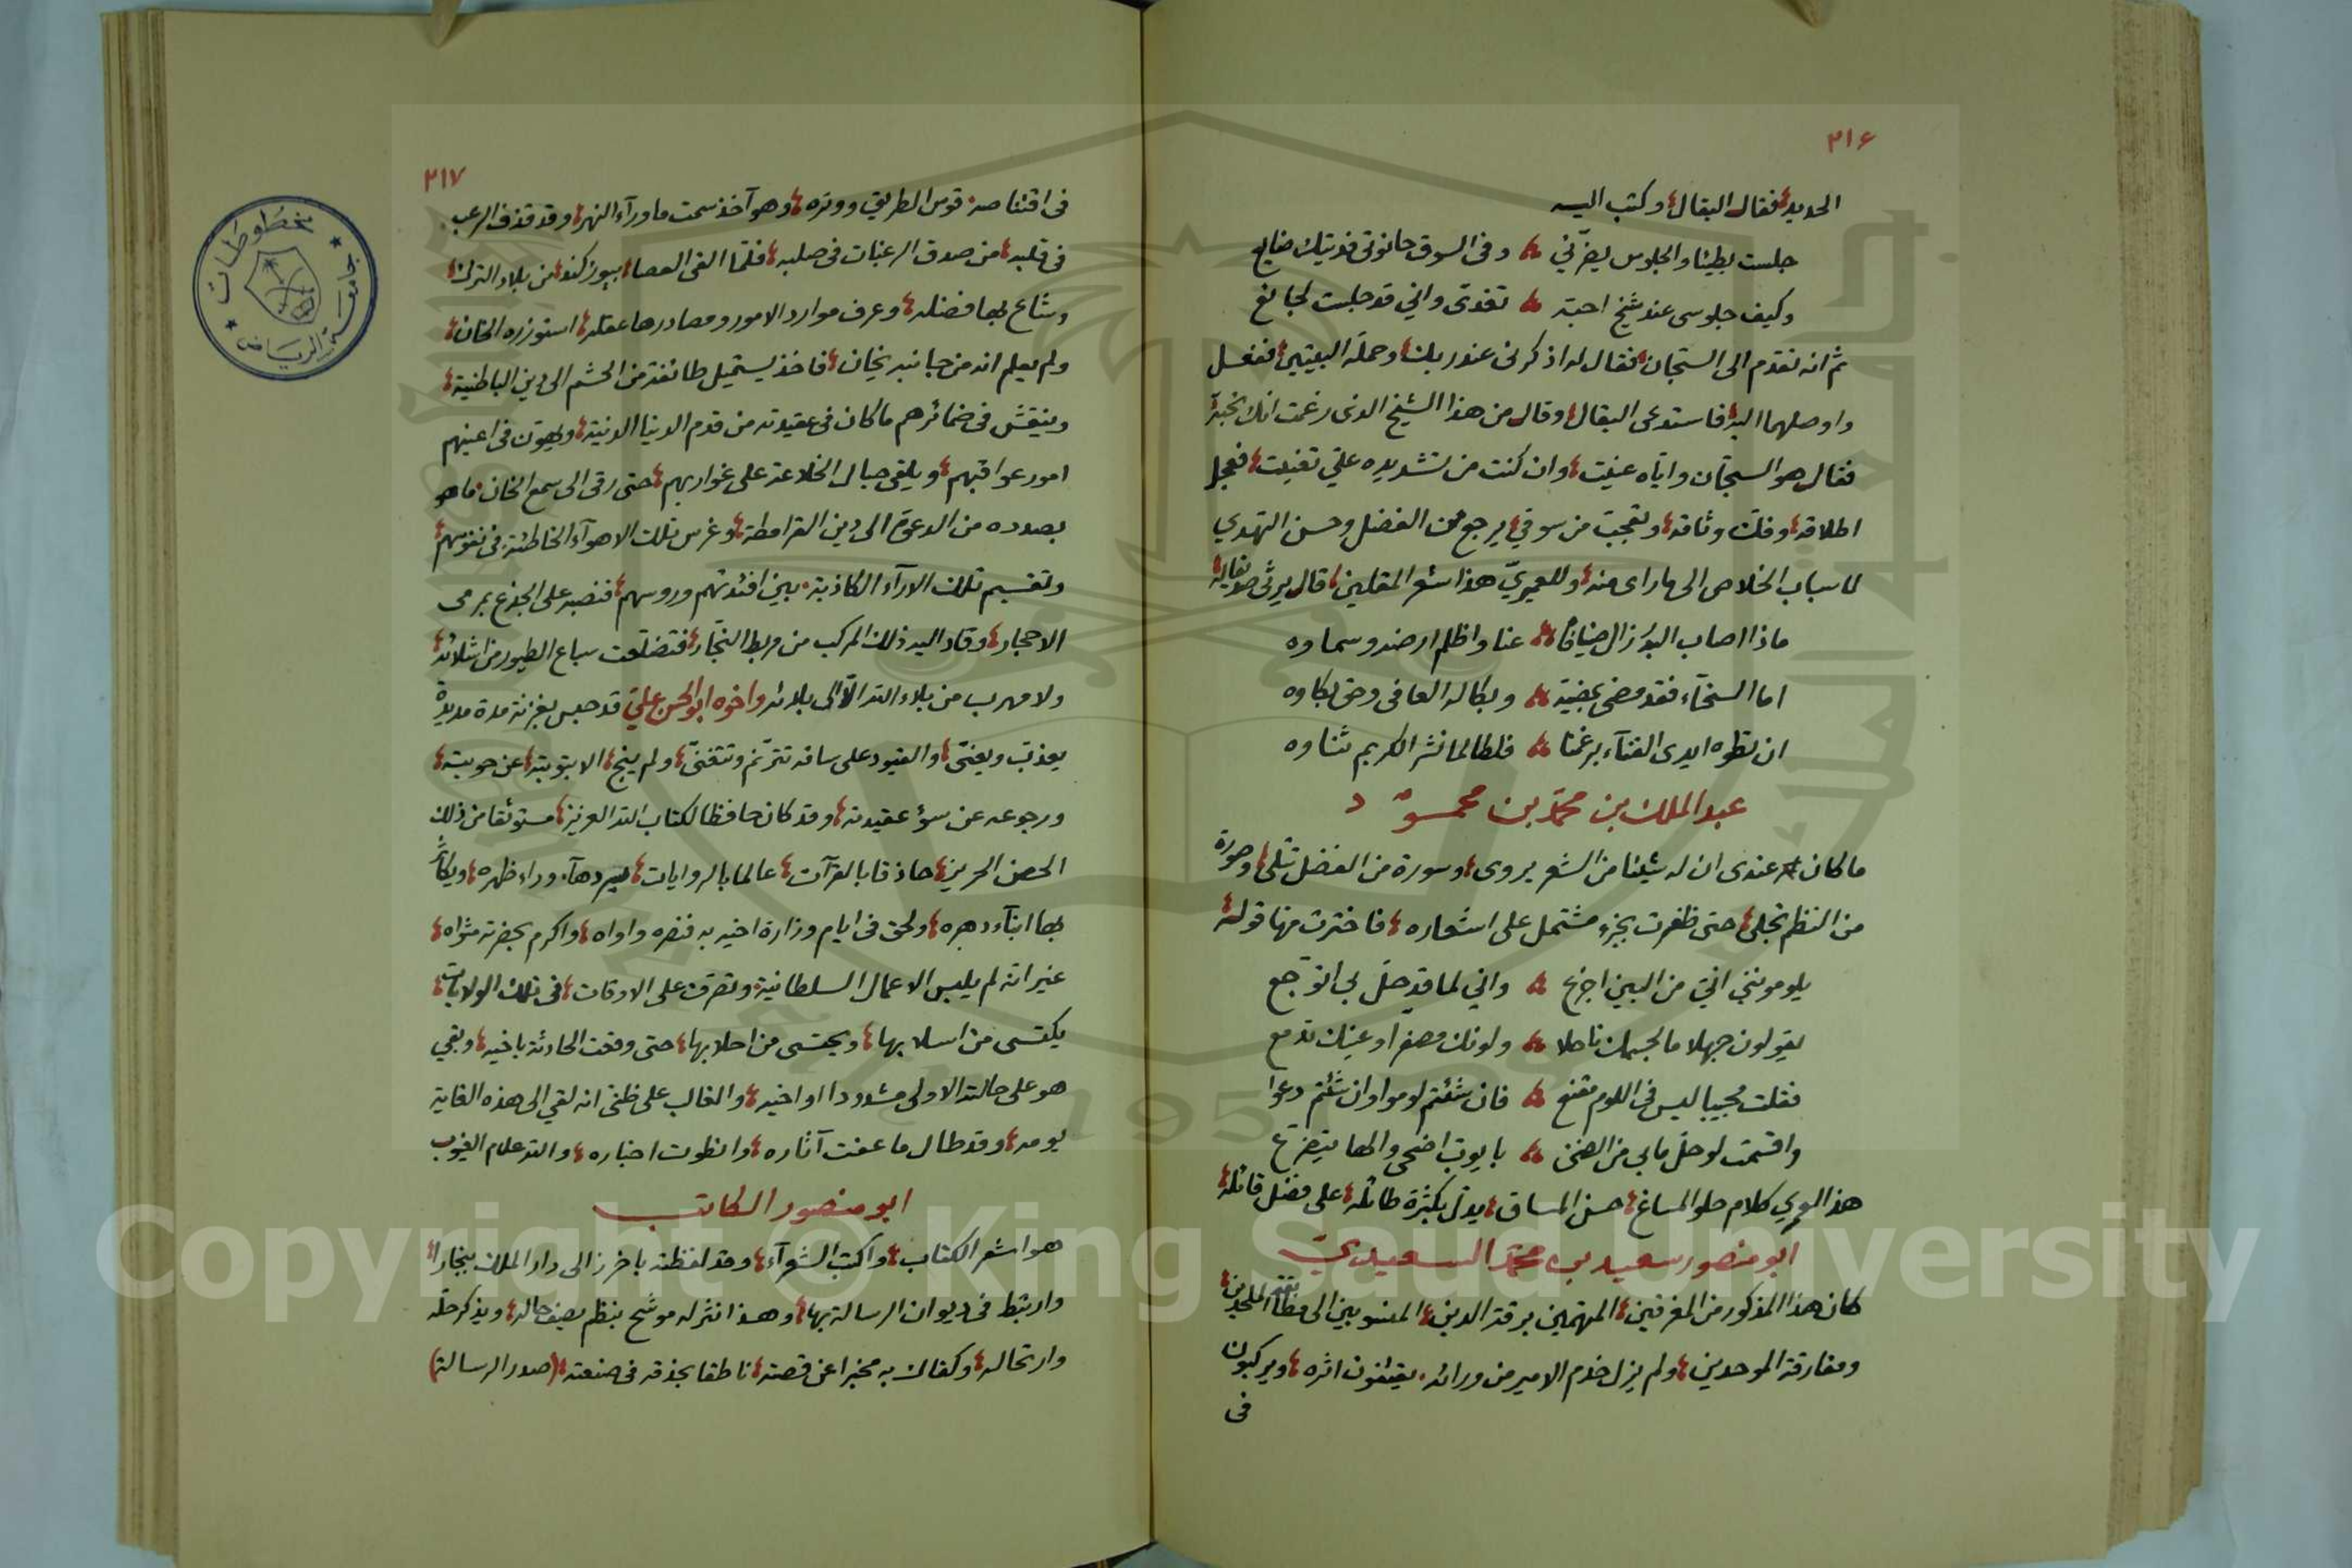 ٢١٦
الحديد فقال البقال وكتب اليه
جلست بطيئا والجلوس يضرّني وفى السوق حانوتى فديتك ضايع
وكيف جلوسى عند شيخ احبته تغدى واني قد جلست لجايع
ثم انه تقدم الى السجان فقال له اذكرنى عند ربك وحمله البيتين ففعل
واوصلهما اليه فاستدعى البقال وقال من هذا الشيخ الذى زعمت انك تحبه
فقال هو السجّان واياه عنيت وان كنت من تشديده عليّ تعنيت فعجل
اطلاقه وفك وثاقه وتعجب من سوقي يرجع من الفضل وحسن التهدي
لاسباب الخلاص الى ما راى منه وللعميريّ هذا شعر المقلين قال يرثى
ماذا اصاب البؤ زال ضيافا عنا واظلم ارضه وسماوه
اما السخآء فقد مضى بمضيه وبكا له العافى وحق بكاوه
ان تطوه ايدى الفنآء برغمنا فلطالما نشر الكريم ثناوه
عبد الملك بن محمد بن محمود
ما كان عندى ان له شيئا من الشعر يروى وسورة من الفضل تتلى وصورة
من النظم تجلى حتى ظفرت بجزء مشتمل على اشعاره فاخترت منها قوله
يلومونني اني من البين اجزع واني لما قد حل بى اتوجع
يقولون جهلا ما لجسمك ناحلا ولونك مصفرا وعينك تدمع
فقلت مجيبا ليس فى اللوم مقنع فان شئتم لوموا وان شئتم دعوا
واقسمت لو حل مابي من الضنى بايوب اضحى والها يتضرع
هذا لعمري كلام حلو المساغ حسن المساق يدل بكثرة طائله على فضل قائله
ابو منصور سعيد بن محمد السعيدي
كان هذا المذكور من المغرقين المتهمين برقة الدين المنسوبين الى مطابقة الملحدين
ومفارقة الموحدين ولم يزل خدم الامير من ورائه يقتفون اثره ويركبون
فى
٢١٧
فى اقتناصه قوس الطريق ووتره وهو آخذ سمت ما ورآء النهر وقد قذف الرعب
فى قلبه من صدق الرغبات فى صلبه فلما القى العصا بيوزكند من بلاد الترك
وشاع بها فضله وعرف موارد الامور ومصادرها عقله استوزره الخان
ولم يعلم انه من جانبه يخان فاخذ يستميل طائفة من الحشم الى دين الباطنية
وينقش فى ضمائرهم ما كان فى عقيدته من قدم الدنيا الدنية ويهوّن فى اعينهم
امور عواقبهم ويلقى حبال الخلاعة على غواربهم حتى رقى الى سمع الخان ما هو
بصدده من الدعوة الى دين القرامطة وغرس تلك الاهوآء الخاطئة فى نفوسهم
وتقسيم تلك الارآء الكاذبة بين افئدتهم وروسهم فنصبه على الجذع يرمى
الاحجار وقاد اليه ذلك المركب من مربط النجار فتضلعت سباع الطيور من اشلائه
ولا مهرب من بلاء الله الّا الى بلائه واخوه ابو الحسن علي قد حبس بغزنة مدة مديدة
يعذب ويعنّى والقيود على ساقه تترنم وتتغنّى ولم ينج الا بتوبته عن حوبته
ورجوعه عن سؤ عقيدته وقد كان حافظا لكتاب الله العزيز مستوثقا من ذلك
الحصن الحريز حاذقا بالقرآت عالما بالروايات يسردها ورآء ظهره ويكاثر
بها ابنآء دهره ولحق فى ايام وزارة اخيه به فنصره واواه واكرم بحضرته مثواه
غير انه لم يلبس الاعمال السلطانية وتصرف على الاوقات فى تلك الولايات
يكتسى من اسلابها ويحتسى من احلابها حتى وقعت الحادثة باخيه وبقي
هو على حالته الاولى مشدودا اواخيه والغالب على ظنى انه لقي الى هذه الغاية
يومه وقد طال ما عفت آثاره وانطوت اخباره والله علام الغيوب
ابو منصور الكاتب
هو اشعر الكتاب واكتب الشعرآء وقد لفظته باخرز الى دار الملك ببخارا
وارتبط فى ديوان الرسالة بها وهذا نثر له موشح بنظم يصف حاله ويذكر حله
وارتحاله وكفاك به مخبرا عن قصته ناطقا بحذقه فى صنعته (صدر الرسالة)
مخطوطات
جامعة الرياض
Copyright © King Saud University
1957